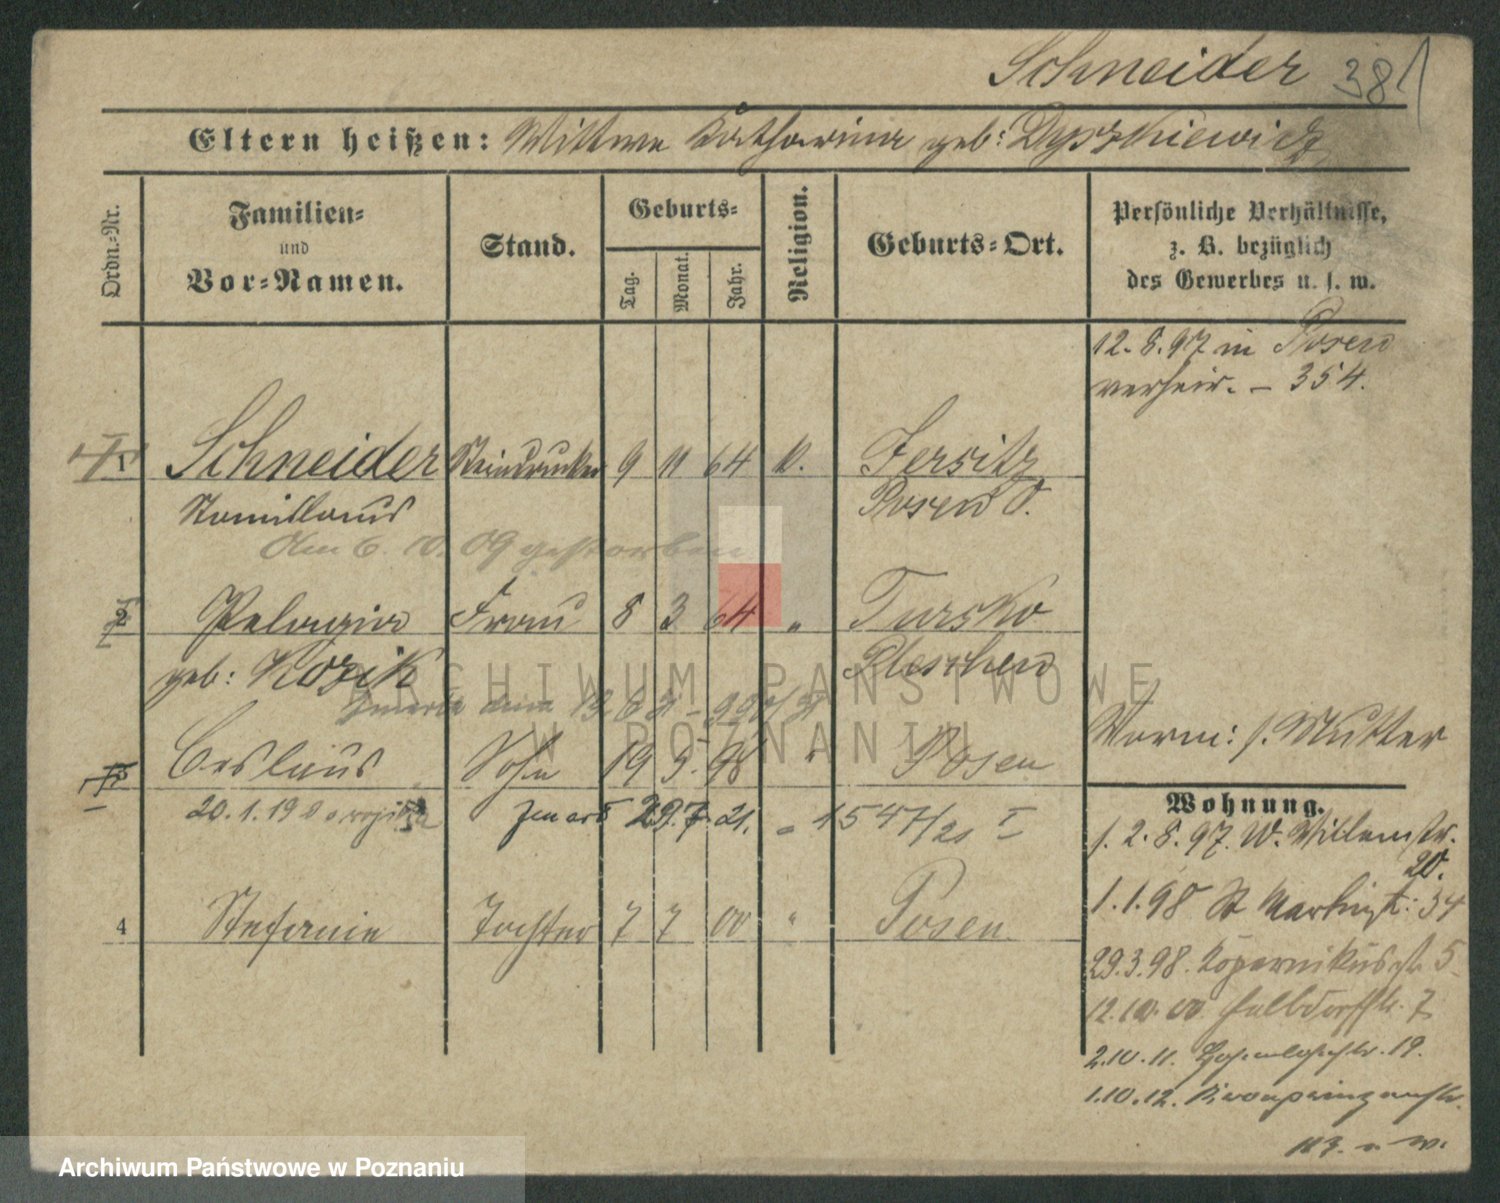 Schneider 381
Eltern heißen: Wittwe Katharina geb: Dyszkiewicz
Ordn.-Nr.
Familien-
und
Vor-Namen.
Stand.
Geburts-
Tag.
Monat.
Jahr.
Religion.
Geburts-Ort.
Persönliche Verhältnisse,
z. B. bezüglich
des Gewerbes u. s. w.
12.8.97 in Posen
verheir. – 354.
1 Schneider Steindrucker 9 11 64 k. Jersitz
Stanislaus Posen O.
Am 6. 10. 09 gestorben
2 Pelagia Frau 8 3 64 " Tursko
geb: Kozik Pleschen
ARCHIWUM PAŃSTWOWE
W POZNANIU
3 Ceslaus Sohn 19 5. 98 " Posen
Vorm: s. Mutter
Wohnung.
20.1.19 29.7.21. 1547/21 I
1. 2.8.97. W. Willemstr.
20.
1.1.98 St Martinst: 34
4 Stefanie Tochter 7 7 00 " Posen
29.3.98. Kopernikusstr 5
12.10.00 Halbdorfstr. 7
2.10.11. Hohenlohestr. 19.
1.10.12. Kronprinzenstr.
Archiwum Państwowe w Poznaniu